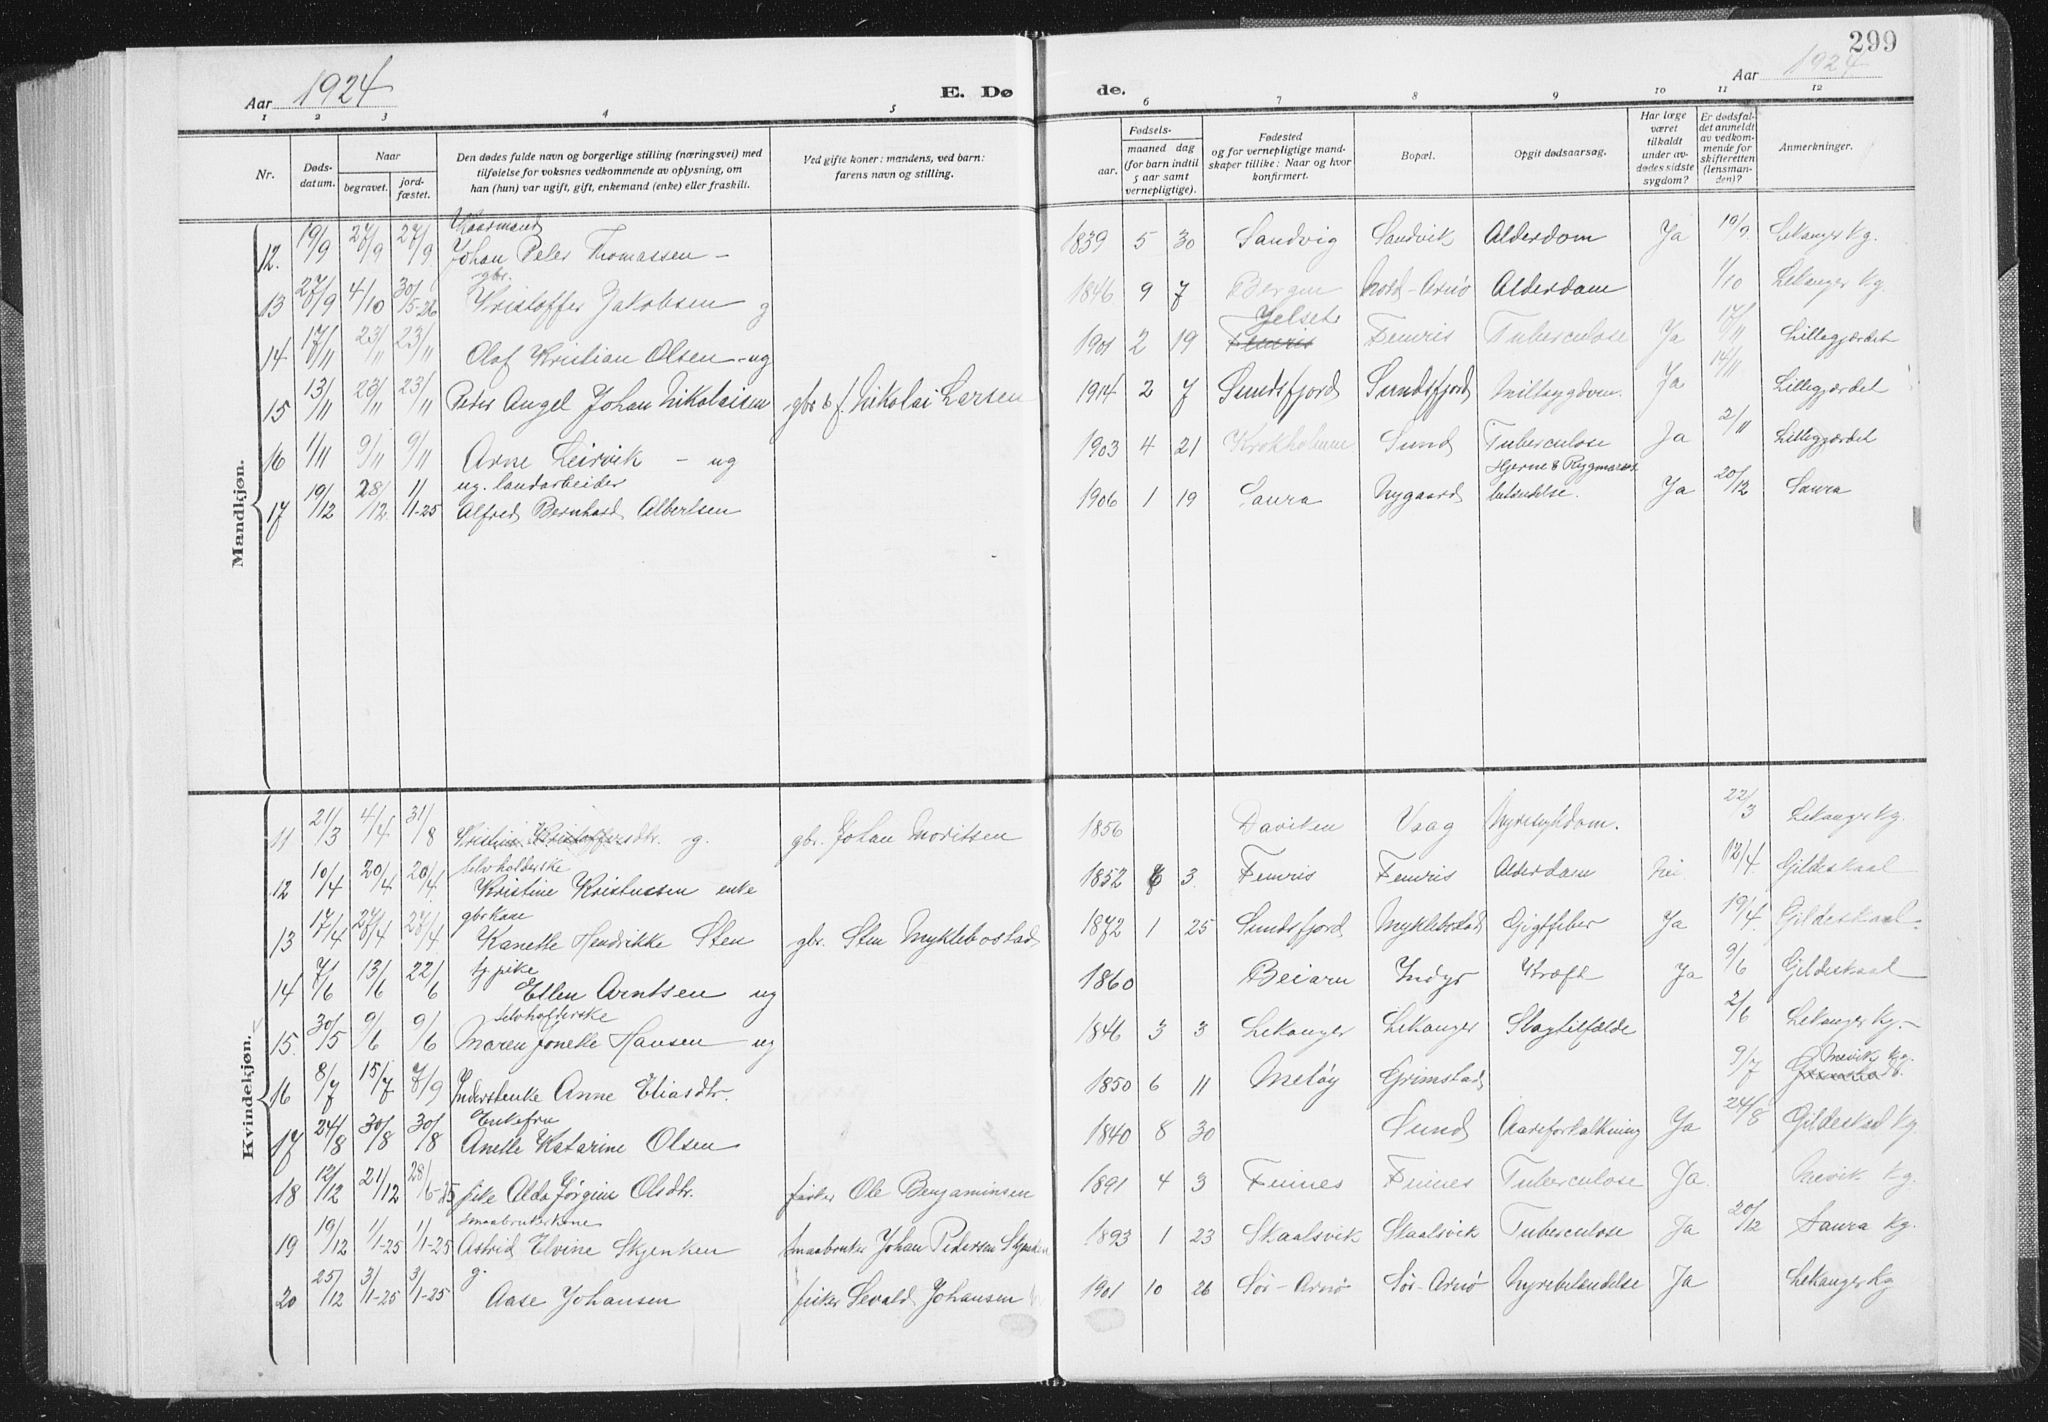 299
Aar 1924
E. Døde.
Aar 1924
1 2 3 4 5 6 7 8 9 10 11 12
Nr.
Døds-datum.
Naar
begravet.
jord-fæstet.
Den dødes fulde navn og borgerlige stilling (næringsvei) med
tilføielse for voksnes vedkommende av oplysning, om
han (hun) var ugift, gift, enkemand (enke) eller fraskilt.
Ved gifte koner: mandens, ved barn:
farens navn og stilling.
Fødsels-
aar.
maaned dag
(for barn indtil
5 aar samt
vernepligtige).
Fødested
og for vernepligtige mand-
skaper tillike: Naar og hvor
konfirmert.
Bopæl.
Opgit dødsaarsag.
Har læge
været
tilkaldt
under av-
dødes sidste
sygdom?
Er dødsfal-
det anmeldt
av vedkom-
mende for
skifteretten
(lensman-
den)?
Anmerkninger.
Mandkjøn.
Kaarmand
12. 19/9 27/9 27/9 Johan Peter Thomassen – 1839 5 30 Sandvig Sandvik Alderdom Ja 19/9 Lekanger kg.
gbr.
13 27/9 4/10 30/5-26 Kristoffer Jakobsen g 1846 9 7 Bergen Nord-Arnø Alderdom 1/10 Lekanger kg.
Jelset
14 17/11 23/11 23/11 Olaf Kristian Olsen – ug 1901 2 19 Femris Femris Tuberculose Ja 17/11 Lillegjærdet
15 13/11 23/11 23/11 Peder Angel Johan Nikolaisen gbr & f. Nikolai Larsen 1914 2 7 Sundsfjord Sundsfjord Miltsygdom. Ja 14/11 Lillegjærdet
16 1/11 9/11 9/11 Arne Leirvik – ug 1903 4 21 Krokholmen Sund Tuberculose Ja 2/11 Lillegjærdet
ug. landarbeider Hjerne & Rygmarvs
17 19/12 28/12. 1/1-25 Alfred Bernhard Albertsen 1906 1 19 Saura Nygaard betændelse. Ja 20/12 Saura
Kvindekjøn.
11 21/3 4/4 31/8 Kristine Kristoffersdtr. g. gbr. Johan Moritsen 1856 Daviken Vaag Nyresykdom. 22/3 Lekanger kg.
Selvholderske
12 10/4 20/4 20/4. Kristine Kristensen enke 1852 6 3 Femris Femris Alderdom Nei 12/4. Gildeskaal
gbrkone
13 17/4 27/4 27/4 Kanelle Hendrikke Sten gbr. Sten Myklebostad 1872 1 25 Sundsfjord Myklebostad Gigtfeber Ja 19/4. Gildeskaal
pike
14 7/6 13/6 22/6 Ellen Arntsen ug 1860 Beiarn Indyr Kræft Ja 9/6 Gildeskaal
Selvholderske
15. 30/5 9/6 9/6 Maren Jonette Hansen – ug 1846 3 3 Lekanger Lekanger Slagtilfælde 2/6 Lekanger kg. –
Mevik kg.
16 8/7 15/7 7/9 Inderstenke Anne Eliasdtr. 1850 6 11 Meløy Grimstad 9/7
Enkefru
17 24/8 30/8 30/8 Anette Katarine Olsen 1840 8 30 Sund Aareforkalkning Ja 24/8 Gildeskaal kg.
18 12/12 21/12 28/6-25 pike Alda Jørgine Olsdtr. fisker Ole Benjaminsen 1891 4 3 Finnes Finnes Tuberculose Ja. Mevik kg.
Smaabrukerkone
19 19/12 1/1-25 1/1-25 Astrid Elvine Skjenken Smaabruker Johan Pedersen Skjenken 1893 1 23 Skaalsvik Skaalsvik Tuberculose Ja 20/12 Saura kg.
g.
20 25/12 3/1-25 3/1-25 Aase Johansen fisker Sevald Johansen 1901 10 26 Sør-Arnø Sør-Arnø Nyrebetendelse Ja Lekanger kg